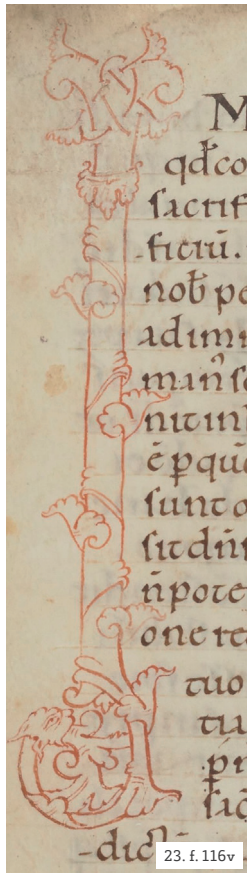 M
qd̄co
sacrif
ficiū.
nob̄ pe
adimi
man̄ s
nit in
ē p̱ qu
sunt o
sit dn̄s
n̄ pote
one re
tuo
tia
sac
-dicī
23. f. 116v